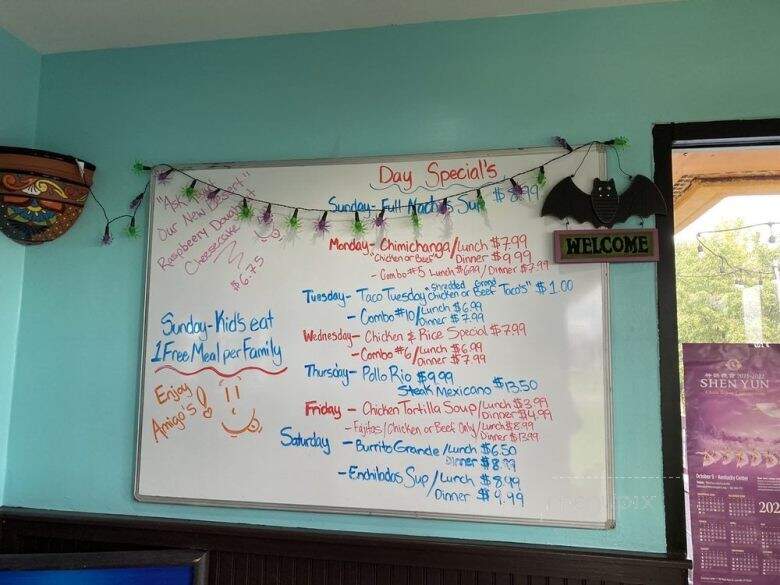 Day Special's
Sunday- Full Nachos Sup $8.99
Monday- Chimichanga/Lunch $7.99
"Chicken or Beef" Dinner $9.99
- Combo #5 Lunch $6.99/Dinner $7.99
Tuesday- Taco Tuesday "Shredded Chicken or Ground Beef Taco's" $1.00
- Combo #10/Lunch $6.99
Dinner $7.99
Wednesday- Chicken & Rice Special $7.99
- Combo #6/Lunch $6.99
Dinner $7.99
Thursday- Pollo Rio $9.99
Steak Mexicano $13.50
Friday- Chicken Tortilla Soup/Lunch $3.99
Dinner $4.99
- Fajitas/Chicken or Beef Only/Lunch $8.99
Dinner $13.99
Saturday - Burrito Grande/Lunch $6.50
Dinner $8.99
- Enchiladas Sup/Lunch $8.49
Dinner $9.99
"Ask
Our New Desert"
Raspbeery Donut
Cheesecake
$6.75
Sunday-Kid's eat
1 Free Meal per Family
Enjoy
Amigo's!
WELCOME
2021-2022
SHEN YUN
October 9 - Kentucky Center
202